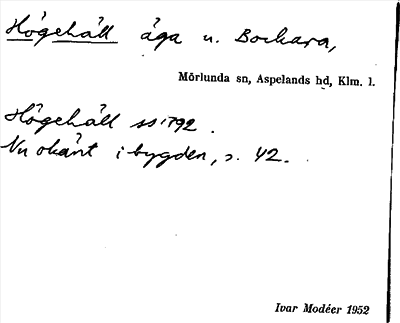 Högehäll äga u. Bockara,
Mörlunda sn, Aspelands hd, Klm. l.
Högehäll ss 1792.
Nu okänt i bygden, s. 42.
Ivar Modéer 1952